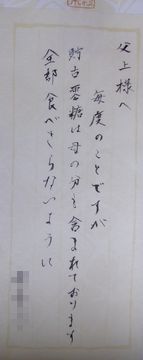 父上様へ
毎度のことですが
貯古齢糖は母の分も含まれております
全部食べきらないように